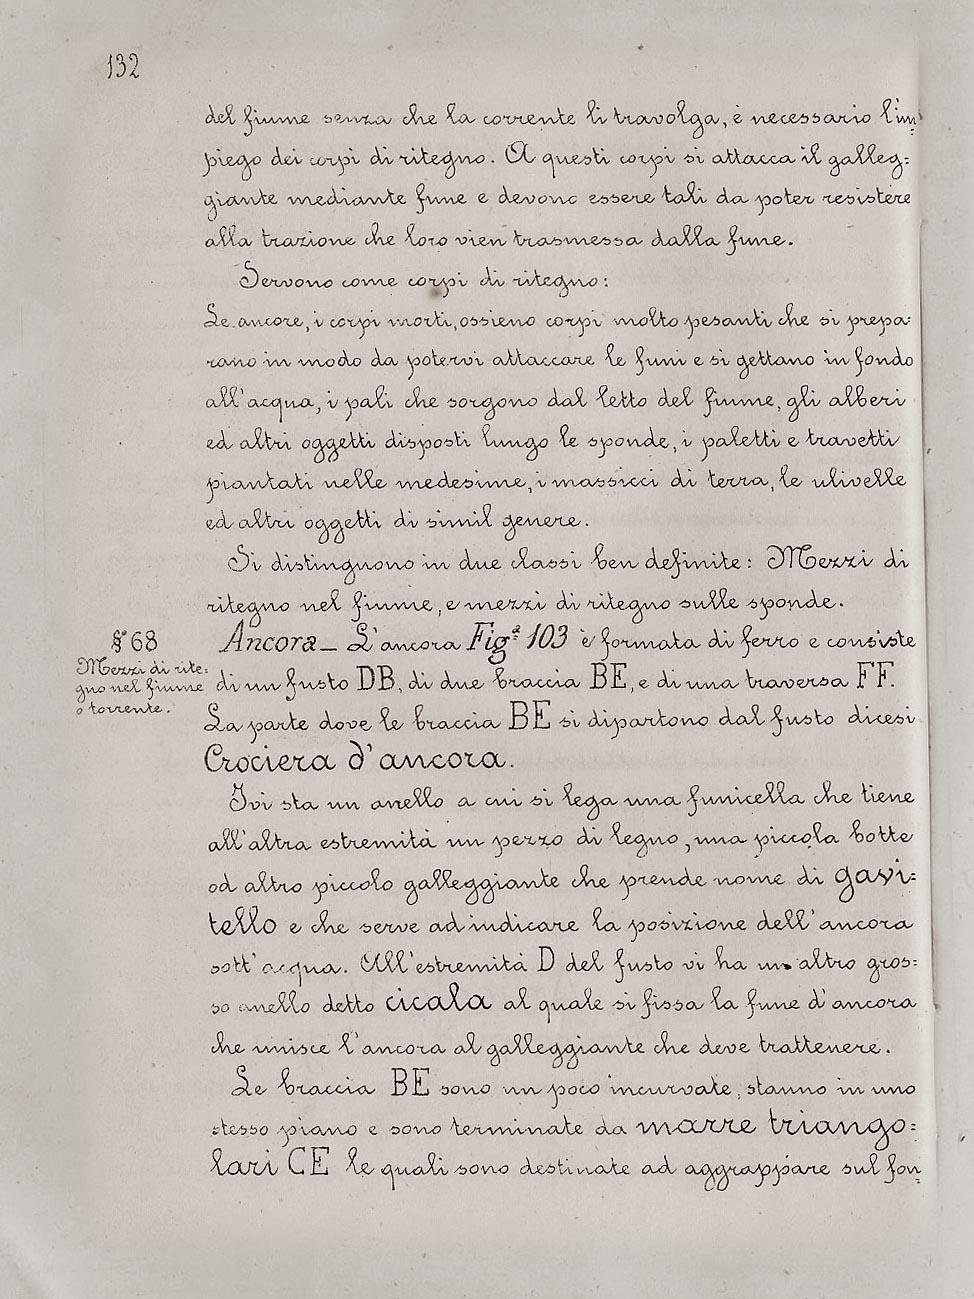 132
del fiume senza che la corrente li travolga, è necessario l'im=
piego dei corpi di ritegno. A questi corpi si attacca il galleg=
giante mediante fune e devono essere tali da poter resistere
alla trazione che loro vien trasmessa dalla fune.
Servono come corpi di ritegno:
Le ancore, i corpi morti, ossieno corpi molto pesanti che si prepa=
rano in modo da potervi attaccare le funi e si gettano in fondo
all'acqua, i pali che sorgono dal letto del fiume, gli alberi
ed altri oggetti disposti lungo le sponde, i paletti e travetti
piantati nelle medesime, i massicci di terra, le ulivelle
ed altri oggetti di simil genere.
Si distinguono in due classi ben definite: Mezzi di
ritegno nel fiume, e mezzi di ritegno sulle sponde.
§° 68
Mezzi di rite=
gno nel fiume
o torrente.
Ancora_ L'ancora Figª 103 è formata di ferro e consiste
di un fusto DB, di due braccia BE, e di una traversa FF.
La parte dove le braccia BE si dipartono dal fusto dicesi
Crociera d'ancora.
Ivi sta un anello a cui si lega una funicella che tiene
all'altra estremità un pezzo di legno, una piccola botte
od altro piccolo galleggiante che prende nome di gavi=
tello e che serve ad indicare la posizione dell'ancora
sott'acqua. All'estremità D del fusto vi ha un altro gros=
so anello detto cicala al quale si fissa la fune d'ancora
che unisce l'ancora al galleggiante che deve trattenere.
Le braccia BE sono un poco incurvate, stanno in uno
stesso piano e sono terminate da marre triango=
lari CE le quali sono destinate ad aggrappare sul fon=